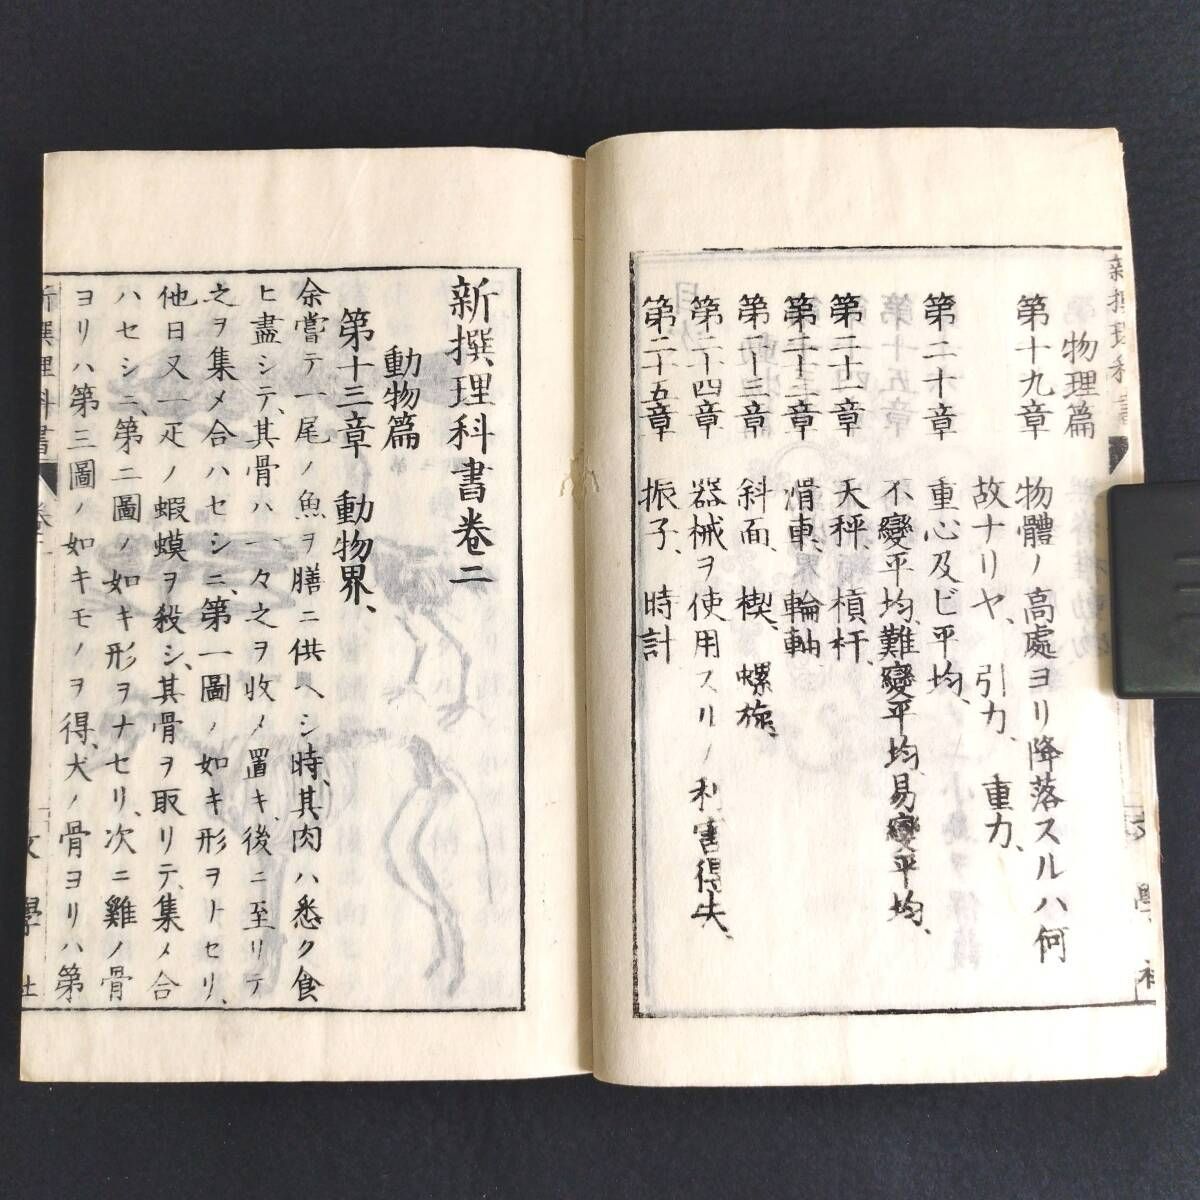 新撰理科書
物理篇
第十九章 物體ノ高處ヨリ降落スルハ何
故ナリヤ、引力、重力、
第二十章 重心及ビ平均、
不變平均、難變平均、易變平均、
第二十一章 天秤、槓杆、
第二十二章 滑車、輪軸、
第二十三章 斜面、楔、螺旋、
第二十四章 器械ヲ使用スルノ利害得失、
第二十五章 振子、時計
新撰理科書卷二
動物篇
第十三章 動物界、
余嘗テ一尾ノ魚ヲ膳ニ供ヘシ時、其肉ハ悉ク食
ヒ盡シテ、其骨ハ一々之ヲ收メ置キ、後ニ至リテ
之ヲ集メ合ハセシニ、第一圖ノ如キ形ヲナセリ、
他日又一疋ノ蝦蟆ヲ殺シ、其骨ヲ取リテ、集メ合
ハセシニ、第二圖ノ如キ形ヲナセリ、次ニ雞ノ骨
ヨリハ第三圖ノ如キモノヲ得、犬ノ骨ヨリハ第
新撰理科書 文學社